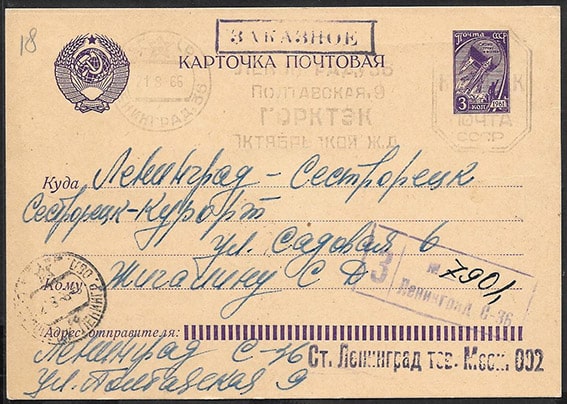 18
ЗАКАЗНОЕ
КАРТОЧКА ПОЧТОВАЯ
ПОЧТА СССР
3 КОП
1961
21 9 66
ЛЕНИНГРАД, 36
Полтавская, 9
ГОРКТЭК
ОКТЯБРЬСКОЙ Ж.Д.
ПОЧТА
СССР
Куда Ленинград - Сестрорецк
Сестрорецк-Курорт
ул. Садовая 6
Кому: Жигалину С Д
З № 7901
Ленинград С-36
Адрес отправителя:
Ленинград С-36
Ст. Ленинград тов. Моск. 002
ул. Полтавская 9